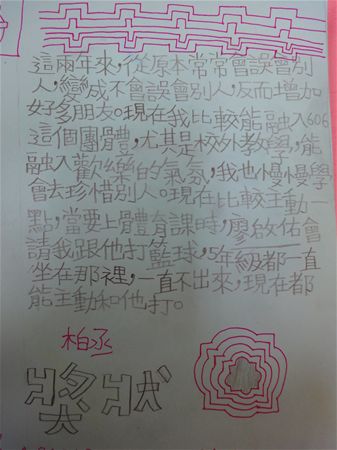 這兩年來,從原本常常會誤會別
人,變成不會誤會別人,反而增加
好多朋友。現在我比較能融入606
這個團體,尤其是校外教學,能
融入歡樂的氣氛,我也慢慢學
會去珍惜別人。現在比較主動一
點,當要上體育課時,廖啟佑會
請我跟他打籃球,5年級都一直
坐在那裡,一直不出來,現在都
能主動和他打。
柏丞
獎狀